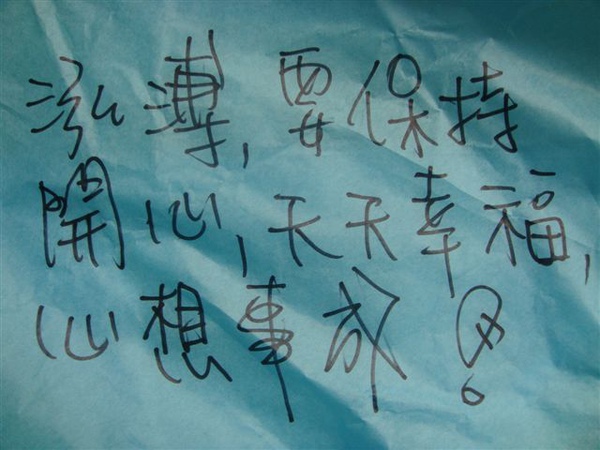 泓溥,要保持
開心,天天幸福,
心想事成!